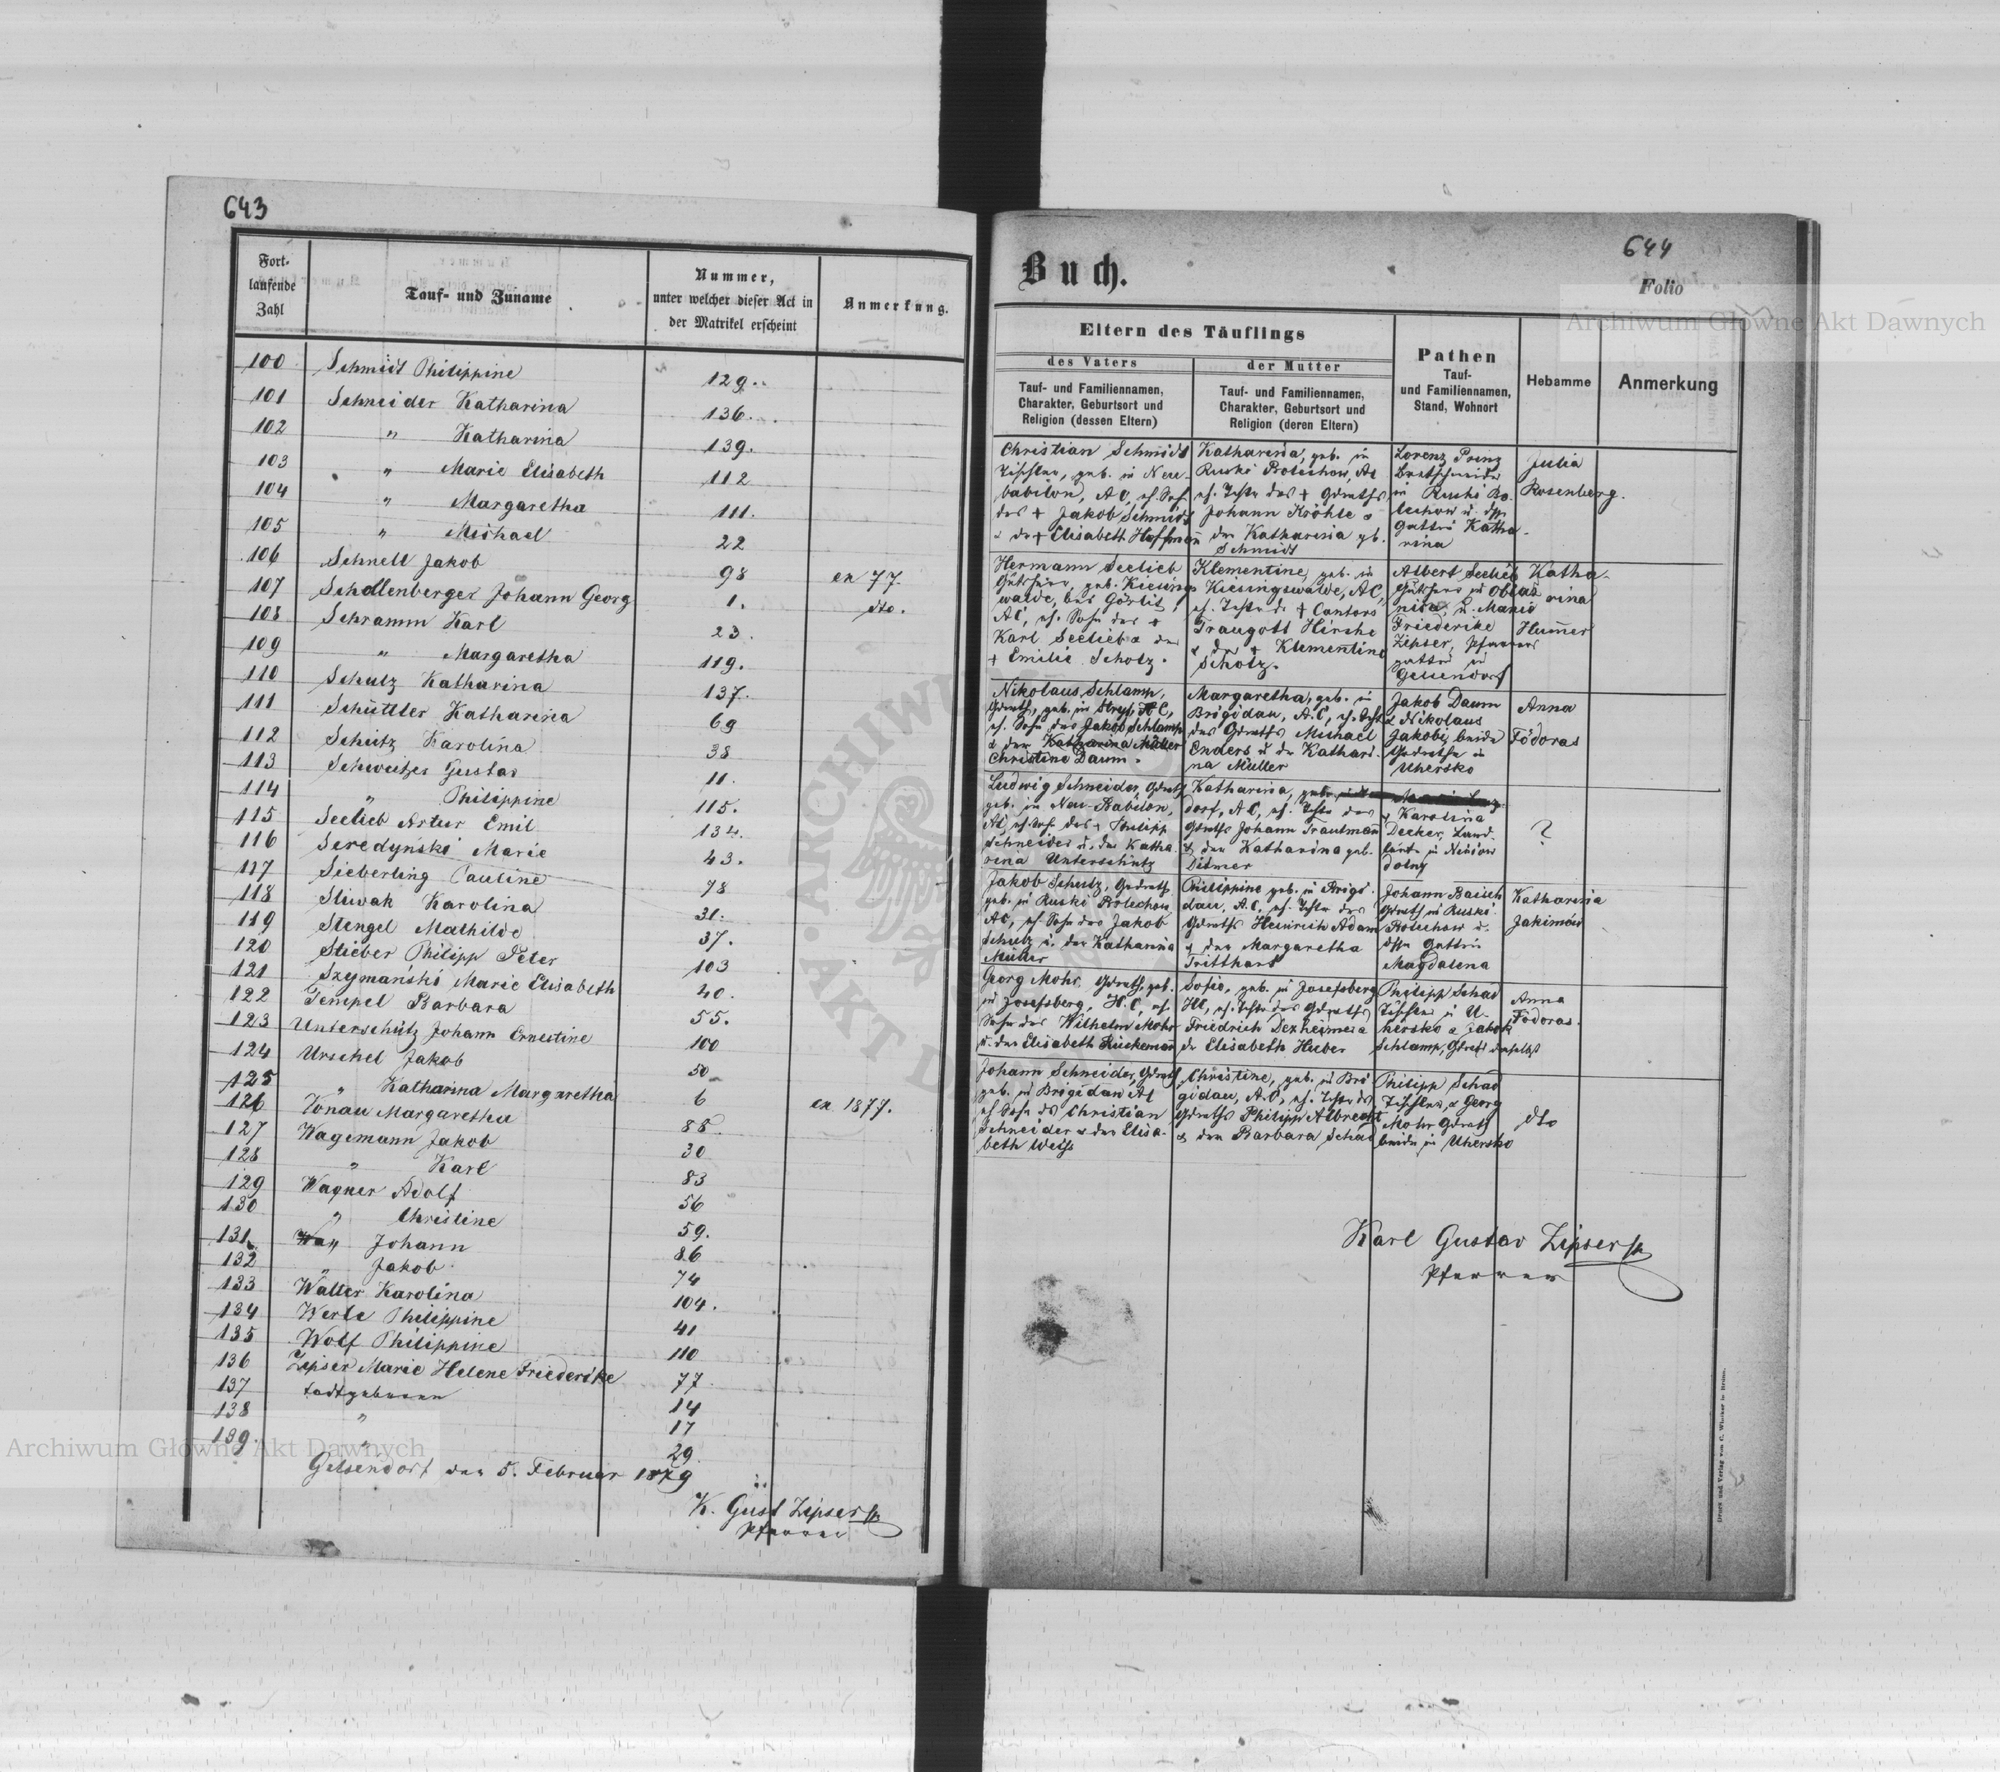 643
Fort-
laufende
Zahl
Tauf- und Zuname
Nummer,
unter welcher dieser Act in
der Matrikel erscheint
Anmerkung.
100 Schmidt Philippine 129.
101 Schneider Katharina 136.
102 " Katharina 139.
103 " Marie Elisabeth 112
104 " Margaretha 111.
105 " Michael 22
106 Schnell Jakob 98 ex 77.
107 Schollenberger Johann Georg 1. dto.
108 Schramm Karl 23.
109 " Margaretha 119.
110 Schulz Katharina 137.
111 Schüttler Katharina 69
112 Schütz Karolina 38
113 Schweitzer Gustav 11.
114 " Philippine 115.
115 Seelieb Artur Emil 134.
116 Seredyński Marie 43.
117 Sieberling Pauline 78
118 Sliwak Karolina 31.
119 Stengel Mathilde 37.
120 Stieber Philipp Peter 103
121 Szymański Marie Elisabeth 40.
122 Tempel Barbara 55.
123 Unterschütz Johann Ernestine 100
124 Urschel Jakob 50
125 " Katharina Margaretha 6 ex 1877.
126 Vonau Margaretha 88
127 Wagemann Jakob 30
128 " Karl 83
129 Wagner Adolf 56
130 " Christine 59.
131 " Johann 86
132 " Jakob 74
133 Walter Karolina 104.
134 Werle Philippine 41
135 Wolf Philippine 110
136 Zipser Marie Helene Friederike 77
137 todtgeboren 14
138 " 17
139. " 29
Gelsendorf den 5. Februar 1879
K. Gust Zipser
Pfarrer
Buch.
644
Folio
Eltern des Täuflings
des Vaters
Tauf- und Familiennamen,
Charakter, Geburtsort und
Religion (dessen Eltern)
der Mutter
Tauf- und Familiennamen,
Charakter, Geburtsort und
Religion (deren Eltern)
Pathen
Tauf-
und Familiennamen,
Stand, Wohnort
Hebamme
Anmerkung
Christian Schmidt
Tischler, geb. in Neu-
babilon, AC, eh. Sohn
des + Jakob Schmidt
& der + Elisabeth Hoffmann
Katharina, geb. in
Ruski Bolechow, AC
eh. Tchtr des + Gdwrths
Johann Kröhle &
der Katharina gb.
Schmidt
Lorenz Prinz
in Ruski Bo-
lechow u. dssn
Gattin Katha-
rina
Julia
Rosenberg.
Hermann Seelieb
geb. Kiesings-
walde, bei Görlitz,
AC, eh. Sohn des +
Karl Seelieb & der
+ Emilie Scholz.
Klementine, geb. in
Kiesingswalde, AC,
eh. Tchtr des + Cantors
Traugott Hirche
& der + Klementine
Scholz.
Albert Seelieb
nica, u. Marie
Friederike
Zipser, Pfarrers
gattin in
Gelsendorf
Katha-
rina
Hummer
Nikolaus Schlamp,
Gdwrth, geb. in Stryj, AC,
eh. Sohn des Jakob Schlamp
& der Katharina Müller
Christine Daum.
Margaretha, geb. in
Brigidau, AC, eh. Tchtr
des Gdwrths Michael
Enders u der Kathari-
na Müller
Jakob Daum
& Nikolaus
Jakobi, beide
Gdwrthe in
Uhersko
Anna
Födoras
Ludwig Schneider, Gdwrth
geb. in Neu-Babilon,
AC, eh. Sohn des + Philipp
Schneider u. der Katha-
rina Unterschütz
Katharina, geb.
dorf, AC, eh. Tchtr des
Gdwrths Johann Trautman
& der Katharina geb.
Ditmer
& Karolina
Decker, Land-
wirte in
dolny
?
Jakob Schulz, Gdwrth
geb. in Ruski Bolechow
AC, eh Sohn des Jakob
Schulz u. der Katharina
Müller
Philippine geb. in Brigi-
dau, AC, eh. Tchtr des
Gdwrths Heinrich Adam
& der Margaretha
Tritthart
Johann Baisch
Gdwrth in Ruski
Bolechow u.
dssn Gattin
Magdalena
Katharina
Jakimów
Georg Mohr, Gdwrth, geb.
in Josefsberg, HC, eh.
Sohn des Wilhelm Mohr
u. der Elisabeth Rückemann
Sofie, geb. in Josefsberg
HC, eh. Tchtr des Gdwrths
Friedrich Dexheimer &
der Elisabeth Huber
Philipp Schad
Tischler in U-
hersko & Jakob
Schlamp, Gdwrth daselbst
Anna
Födoras.
Johann Schneider, Gdwrth
geb. in Brigidau AC
eh Sohn des Christian
Schneider & der Elisa-
beth Weiss
Christine, geb. in Bri-
gidau, AC, eh. Tchtr des
Gdwrths Philipp Albrecht
& der Barbara Schad
Philipp Schad
Tischler, & Georg
Mohr Gdwrth
beide in Uhersko
dto
Karl Gustav Zipser
Pfarrer
Druck und Verlag von C. Winiker in Brünn.
Archiwum Główne Akt Dawnych
Archiwum Główne Akt Dawnych